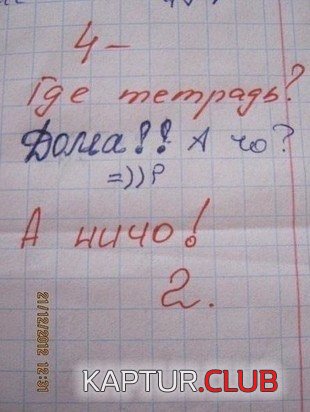 4-
Где тетрадь?
Дома!! А чо?
=))P
А ничо!
2.
21/12/2012 12:31
KAPTUR.CLUB